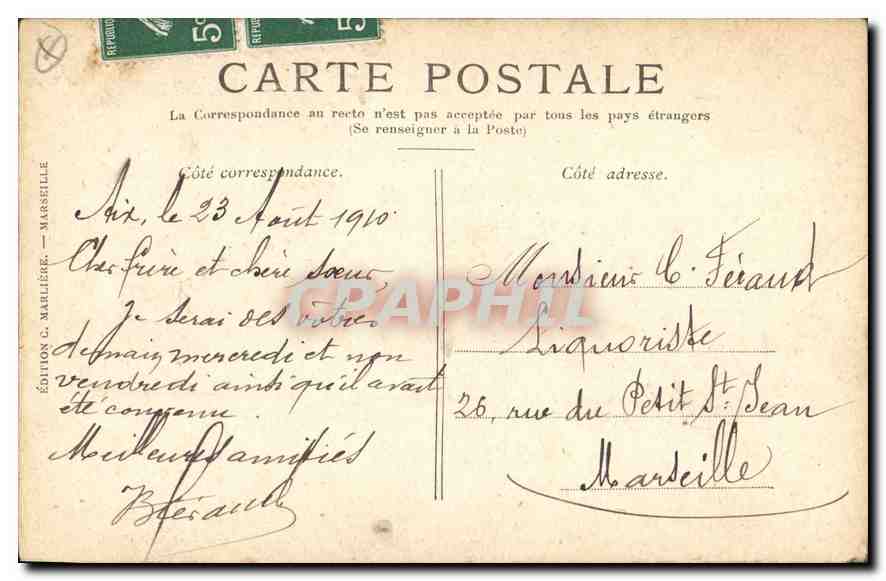 RÉPUBLIQ
5c
RÉPUBLI
5c
CARTE POSTALE
La Correspondance au recto n'est pas acceptée par tous les pays étrangers
(Se renseigner à la Poste)
Côté correspondance.
Aix, le 23 Août 1910
Cher frère et chère sœur,
Je serai des vôtres
demain, mercredi et non
vendredi ainsi qu'il avait
été convenu.
Meilleures amitiés
Côté adresse.
Monsieur C. Féraud
Liquoriste
26, rue du Petit St. Jean
Marseille
ÉDITION C. MARLIÈRE. — MARSEILLE
CPAPHIL